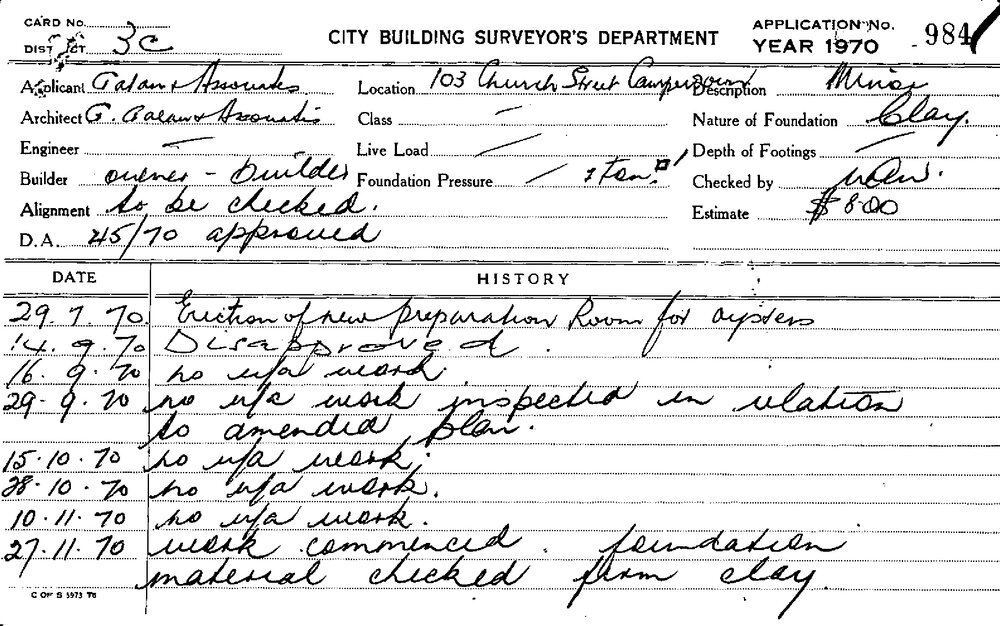 CARD No.
DISTRICT 3C
CITY BUILDING SURVEYOR'S DEPARTMENT
APPLICATION No. 984
YEAR 1970
Applicant Galan & Associates
Location 103 Church Street Camperdown
Description Minor
Architect G. Galan & Associates
Class —
Nature of Foundation Clay.
Engineer —
Live Load —
Depth of Footings —
Builder owner - builder
Foundation Pressure — 1 ton
Checked by
Alignment to be checked.
Estimate $800
D.A. 45/70 approved
DATE HISTORY
29.7.70. Erection of new preparation Room for oysters
14.9.70 Disapproved.
16.9.70 no u/a work.
29.9.70 no u/a work inspected in relation
to amended plan.
15.10.70 no u/a work.
28.10.70 no u/a work.
10.11.70 no u/a work.
27.11.70 work commenced. foundation
material checked firm clay.
C OF S 5973 T6